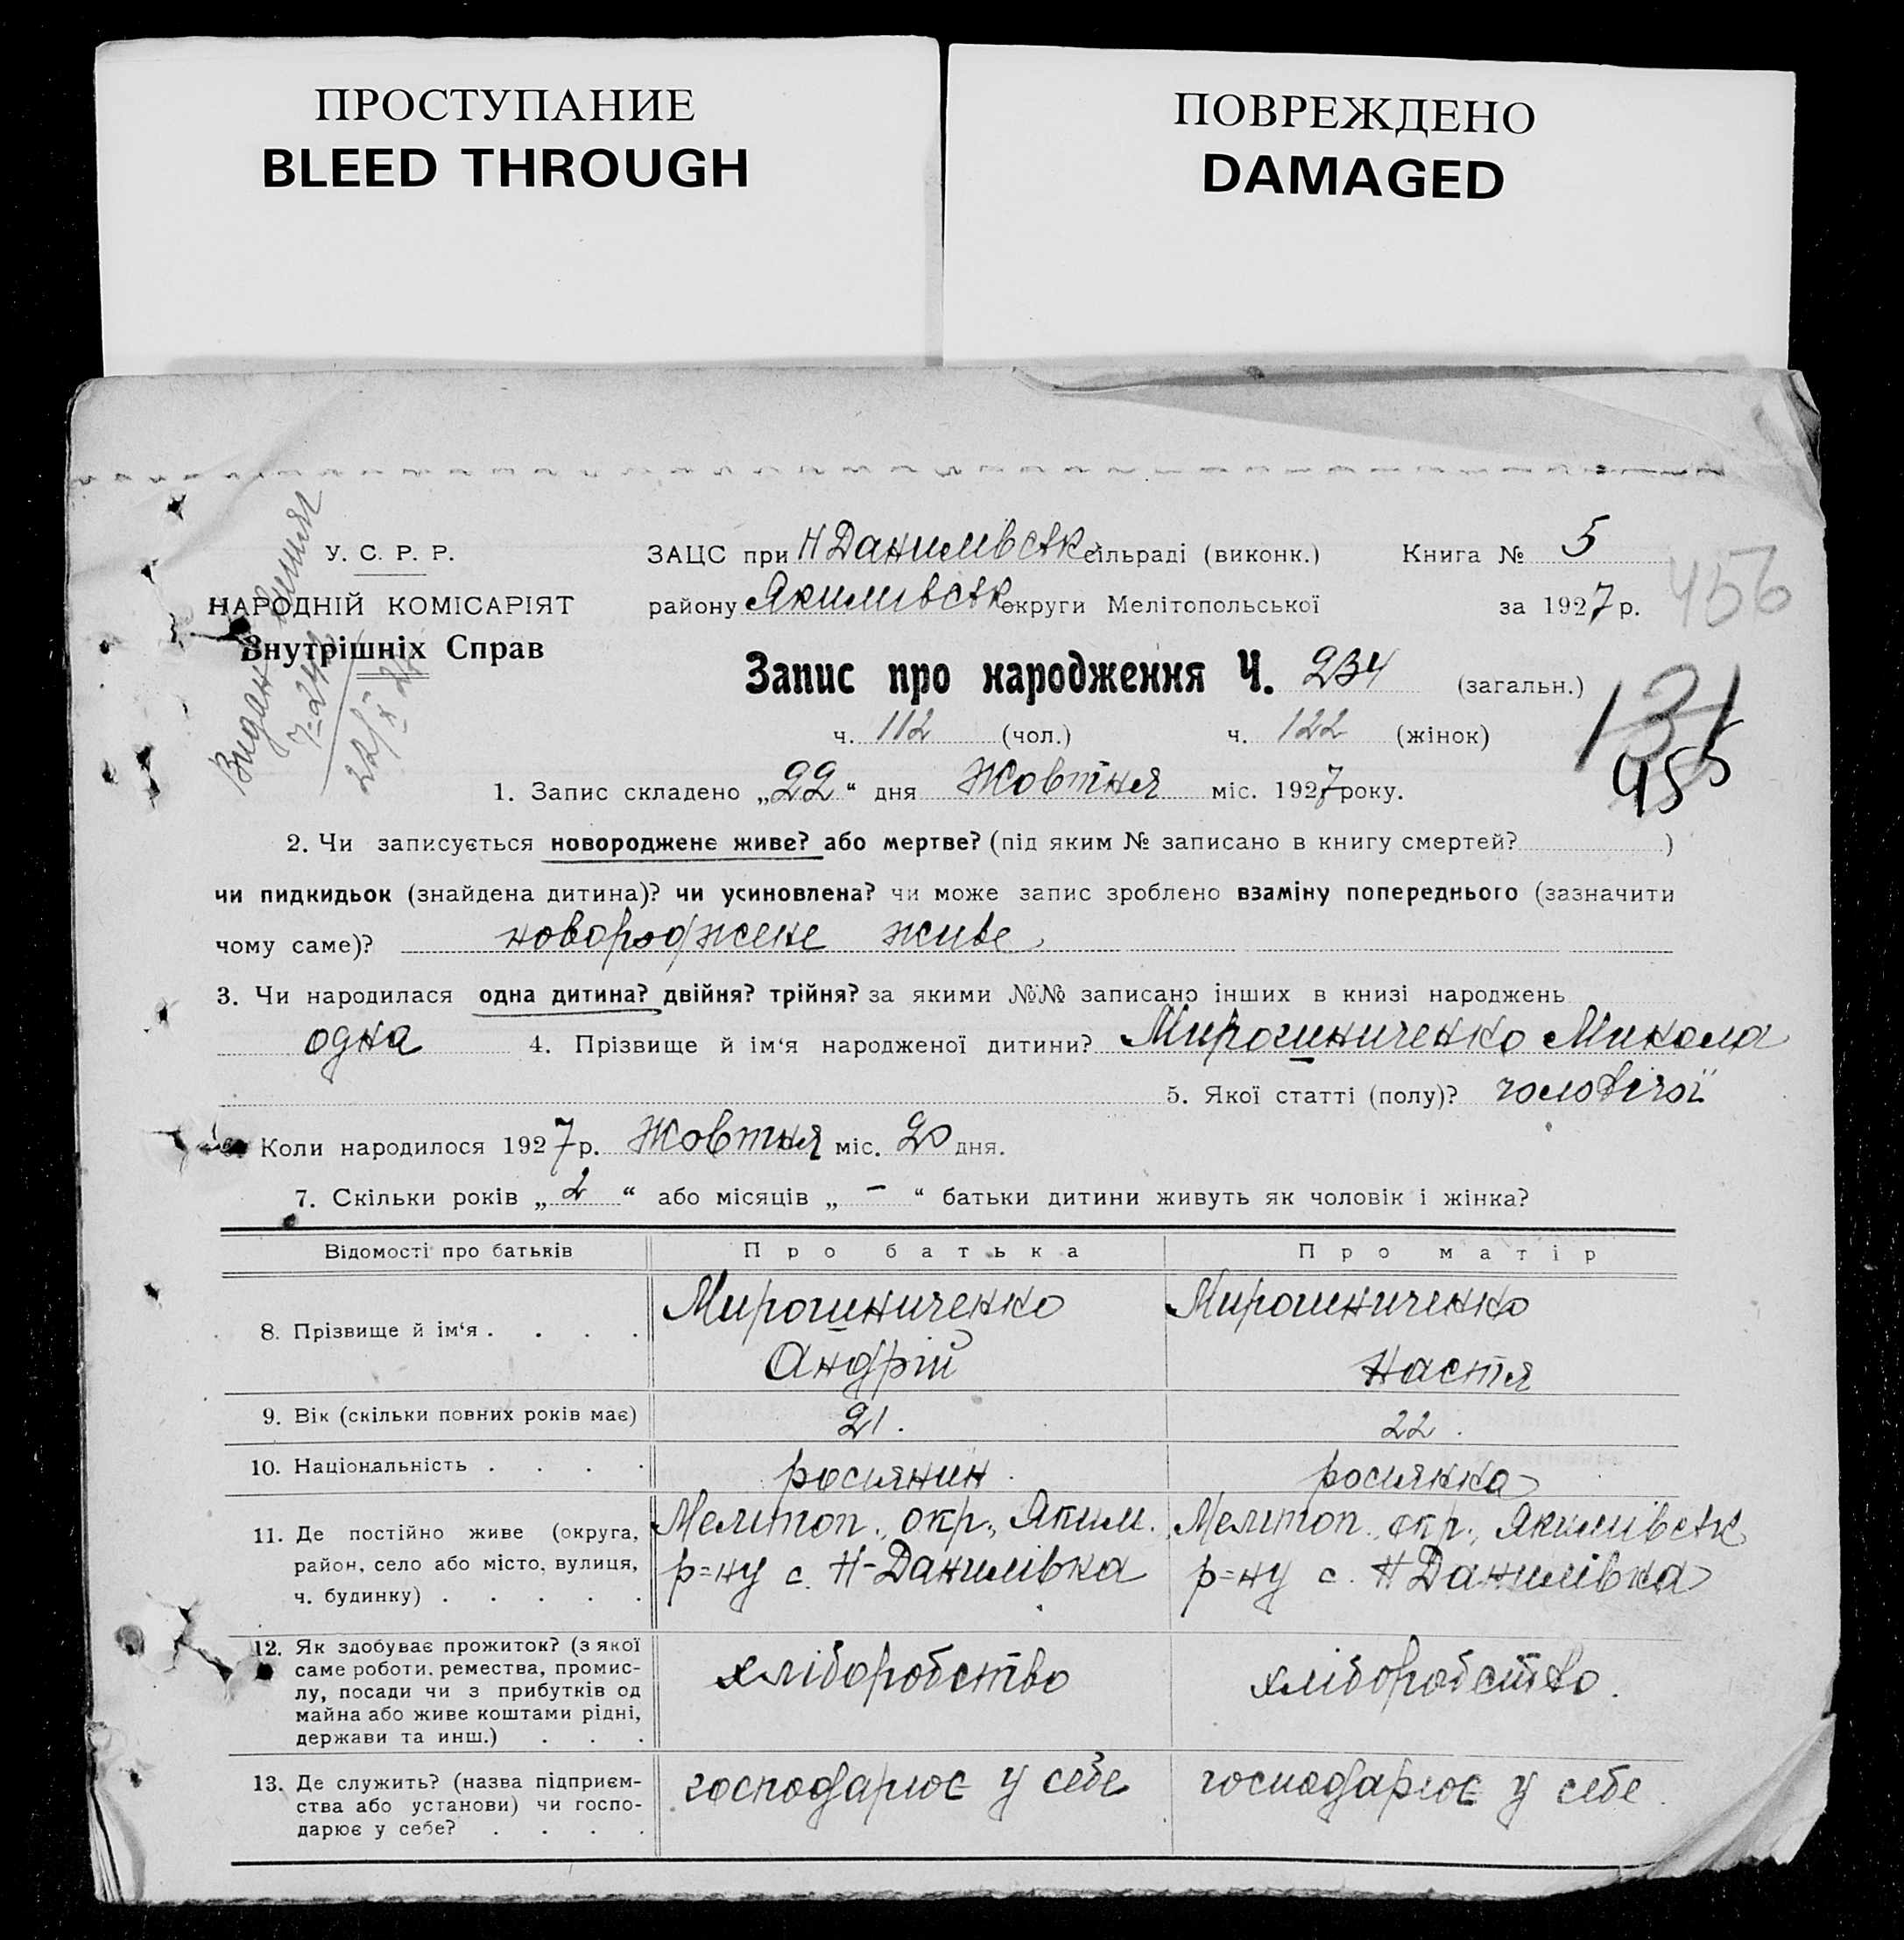 ПРОСТУПАНИЕ
BLEED THROUGH
ПОВРЕЖДЕНО
DAMAGED
У. С. Р. Р.
НАРОДНІЙ КОМІСАРІЯТ
Внутрішніх Справ
Видан
ЗАЦС при Н Данилівськ сільраді (виконк.) Книга № 5
району Якимівськ округи Мелітопольської за 1927 р.
456
Запис про народження Ч. 234 (загальн.)
131
ч. 112 (чол.) ч. 122 (жінок)
455
1. Запис складено „22“ дня Жовтня міс. 1927 року.
2. Чи записується новороджене живе? або мертве? (під яким № записано в книгу смертей? )
чи пидкидьок (знайдена дитина)? чи усиновлена? чи може запис зроблено взаміну попереднього (зазначити
чому саме)? новороджене живе
3. Чи народилася одна дитина? двійня? трійня? за якими №№ записано інших в книзі народжень
одна 4. Прізвище й ім‘я народженої дитини? Мирошниченко Микола
5. Якої статті (полу)? чоловічої
Коли народилося 1927 р. Жовтня міс. 20 дня.
7. Скільки років „2“ або місяців „-“ батьки дитини живуть як чоловік і жінка?
Відомості про батьків Про батька Про матір
8. Прізвище й ім‘я . . . . Мирошниченко Андрій Мирошниченко Настя
9. Вік (скільки повних років має) 21. 22.
10. Національність . . . . росиянин. росиянка
11. Де постійно живе (округа,
район, село або місто, вулиця,
ч. будинку) . . . . .
Мелітоп. окр., Яким.
р=ну с. Н-Данилівка
Мелітоп. окр., Якимівськ
р=ну с. Н Данилівка
12. Як здобуває прожиток? (з якої
саме роботи, ремества, промис-
лу, посади чи з прибутків од
майна або живе коштами рідні,
держави та инш.) . . .
хліборобство
хліборобство.
13. Де служить? (назва підприєм-
ства або установи) чи госпо-
дарює у себе? . . . .
господарює у себе
господарює у себе.